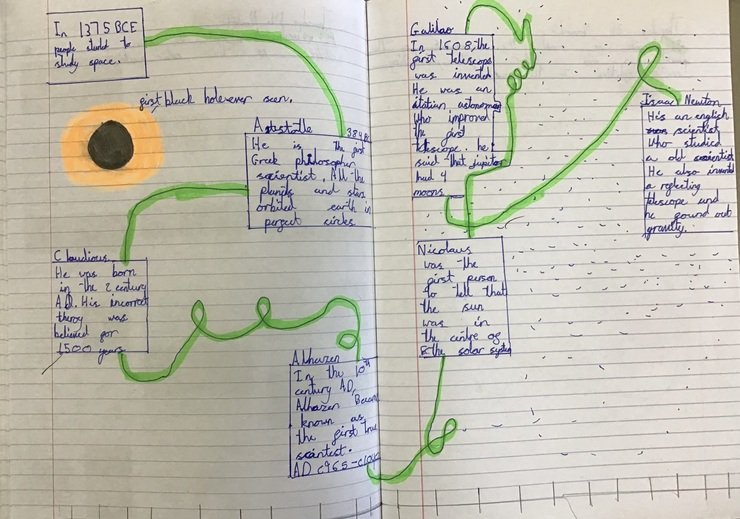 In 1375 BCE
people started to
study space.
first black hole ever seen.
Aristotle 384 BC
He is the first
Greek philosopher
scientist. All the
planets and stars
orbited earth in
perfect circles.
Claudious
He was born
in the 2 century
A.D. His incorrect
theroy was
believed for
1500 years
Alhazen
In the 10th
century AD,
Alhazen Became
known as
the first true
scientist.
AD c965-c1040
Galileo
In 1608, the
first telescope
was invented
He was an
italian astronomer
who improved
the first
telescope. he
said that jupitor
had 4
moons.
Nicolaus
was the
first person
to tell that
the sun
was in
the centre of
the solar system
Isaac Newton
His an english
scientist
who studied
a old scientist
He also invented
a reflecting
telescope and
he found out
gravity.